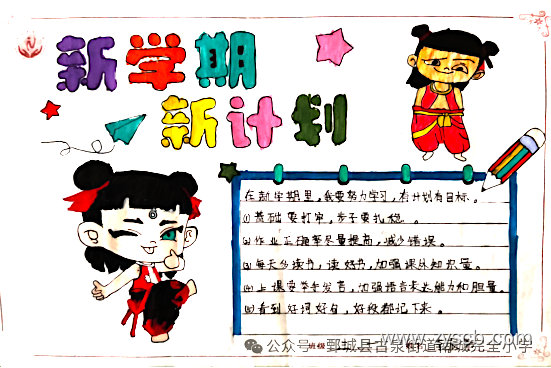 新学期
新计划
在新学期里，我要努力学习，有计划有目标。
(1)基础要打牢，步子要扎稳。
(2)作业正确率尽量提高，减少错误。
(3)每天多读书，读好书，加强课外知识量。
(4)上课举手发言，加强语言表达能力和胆量。
(5)看到好词好句，好段都记下来。
公众号 鄄城县古泉街道 完全小学
班级